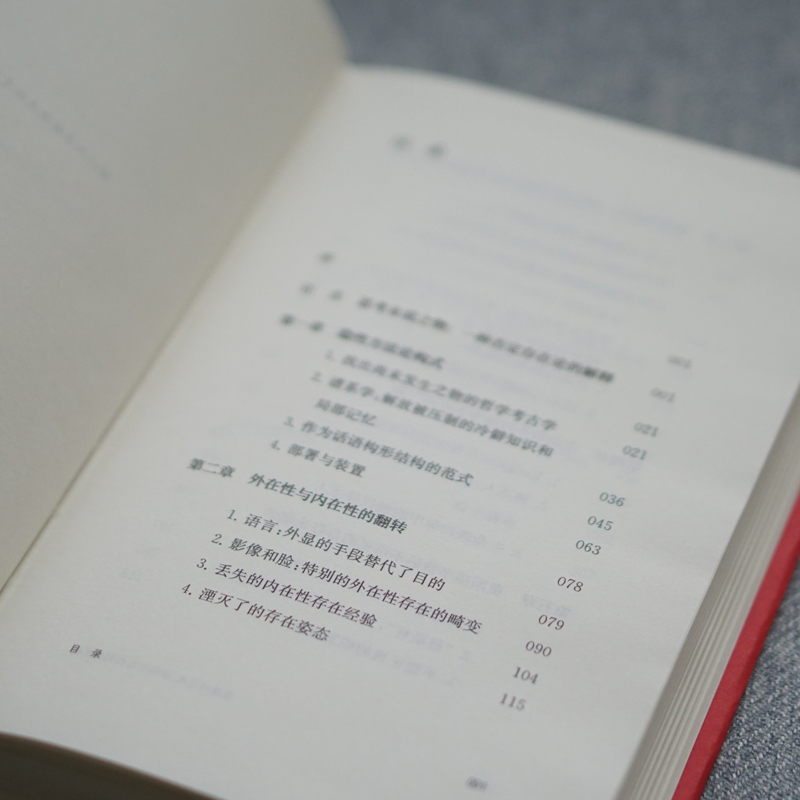 目 录
序
001
导 言 思考未说之物：一种否定存在论的解释 001
第一章 隐性方法论构式 021
1. 找出尚未发生之物的哲学考古学 021
2. 谱系学：解放被压制的冷僻知识和
局部记忆 036
3. 作为话语构形结构的范式 045
4. 部署与装置 063
第二章 外在性与内在性的翻转 078
1. 语言：外显的手段替代了目的 079
2. 影像和脸：特别的外在性存在的畸变 090
3. 丢失的内在性存在经验 104
4. 湮灭了的存在姿态 115
目 录
001